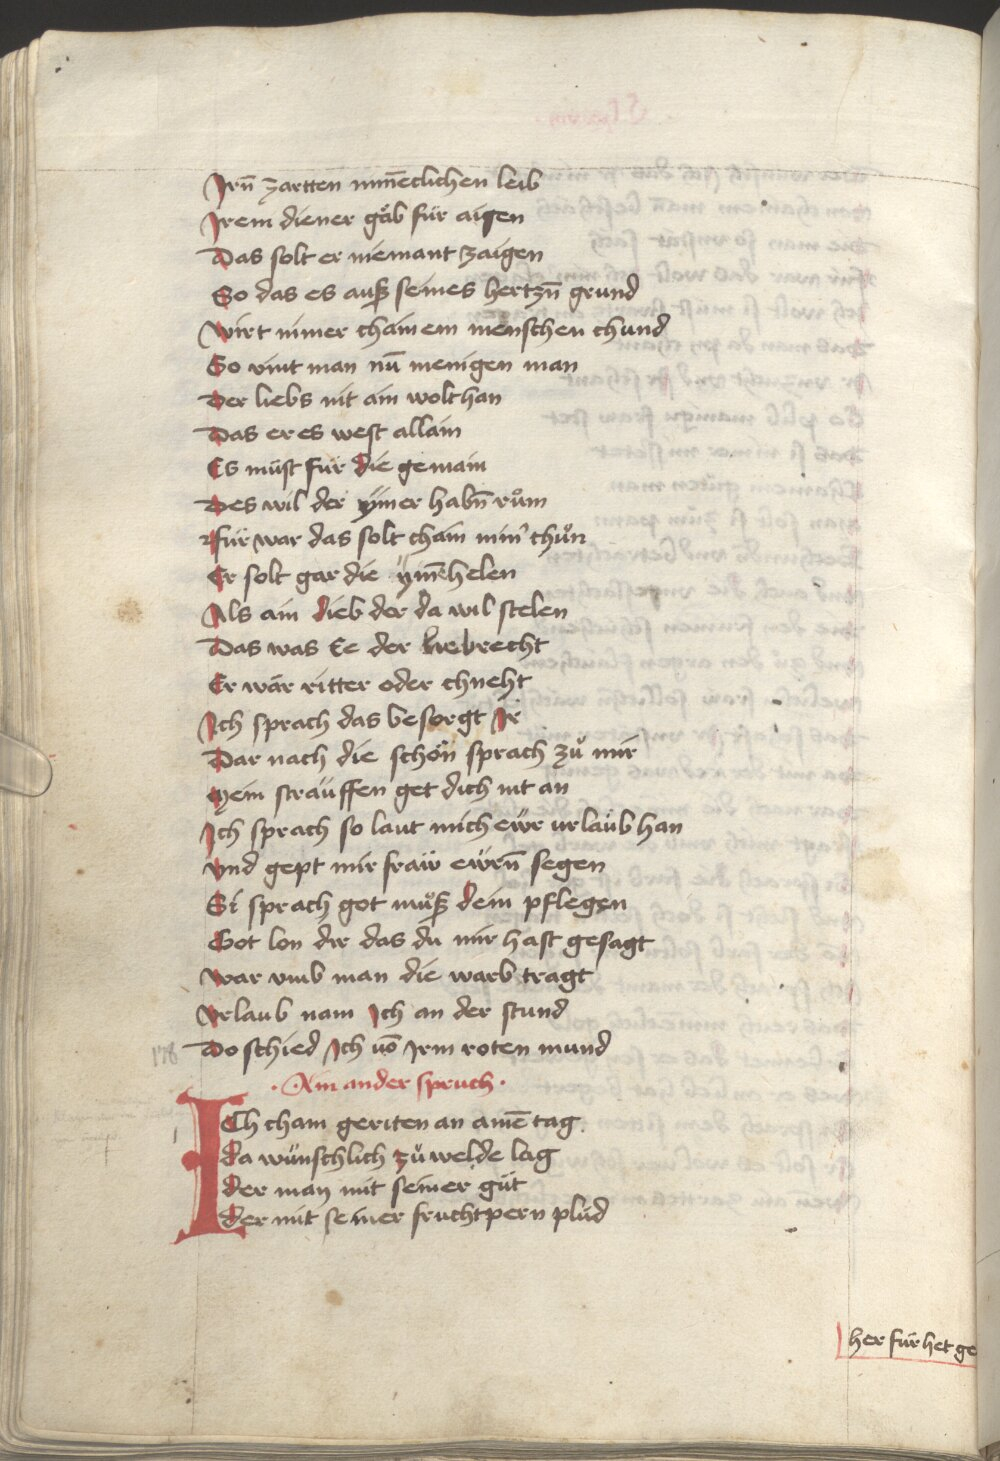 Irn̄ zartten mīneclichen leib
Irem diener gäb für aigen
Das solt er niemant zaigen
So das es auß seines hertzn̄ grund
Wirt nimer chainem menschen chund
So vint man nu̅ menigen man
Der liebs nit ain wolt han
Das er es west allain
Es müst für die gemain
Des wil der ymer habn̄ rům
Für war das solt chain nim͛ thůn
Er solt gar die ym̄ helen
Als ain dieb der da wil stelen
Das was Ee der lieb recht
Er wär ritter oder chneht
Ich sprach das besorgt Ir
Dar nach die schön sprach zů mir
Mein sträuffen get dich nit an
Ich sprach so laut mich ewr urlaub han
Vnd gept mir fraw ewrn̄ segen
Si sprach got můß dein pflegen
Got lon dir das du mir hast gesagt
War vmb man die warb tragt
Vrlaub nam Ich an der stund
Do schied Ich vō Irm roten mund
178
· Ain ander spruch ·
ICh cham geriten an aine̅ tag
da wünschlich zů welde lag
der may mit seiner güt
der mit seiner fruchtpern plüd
her für het ge